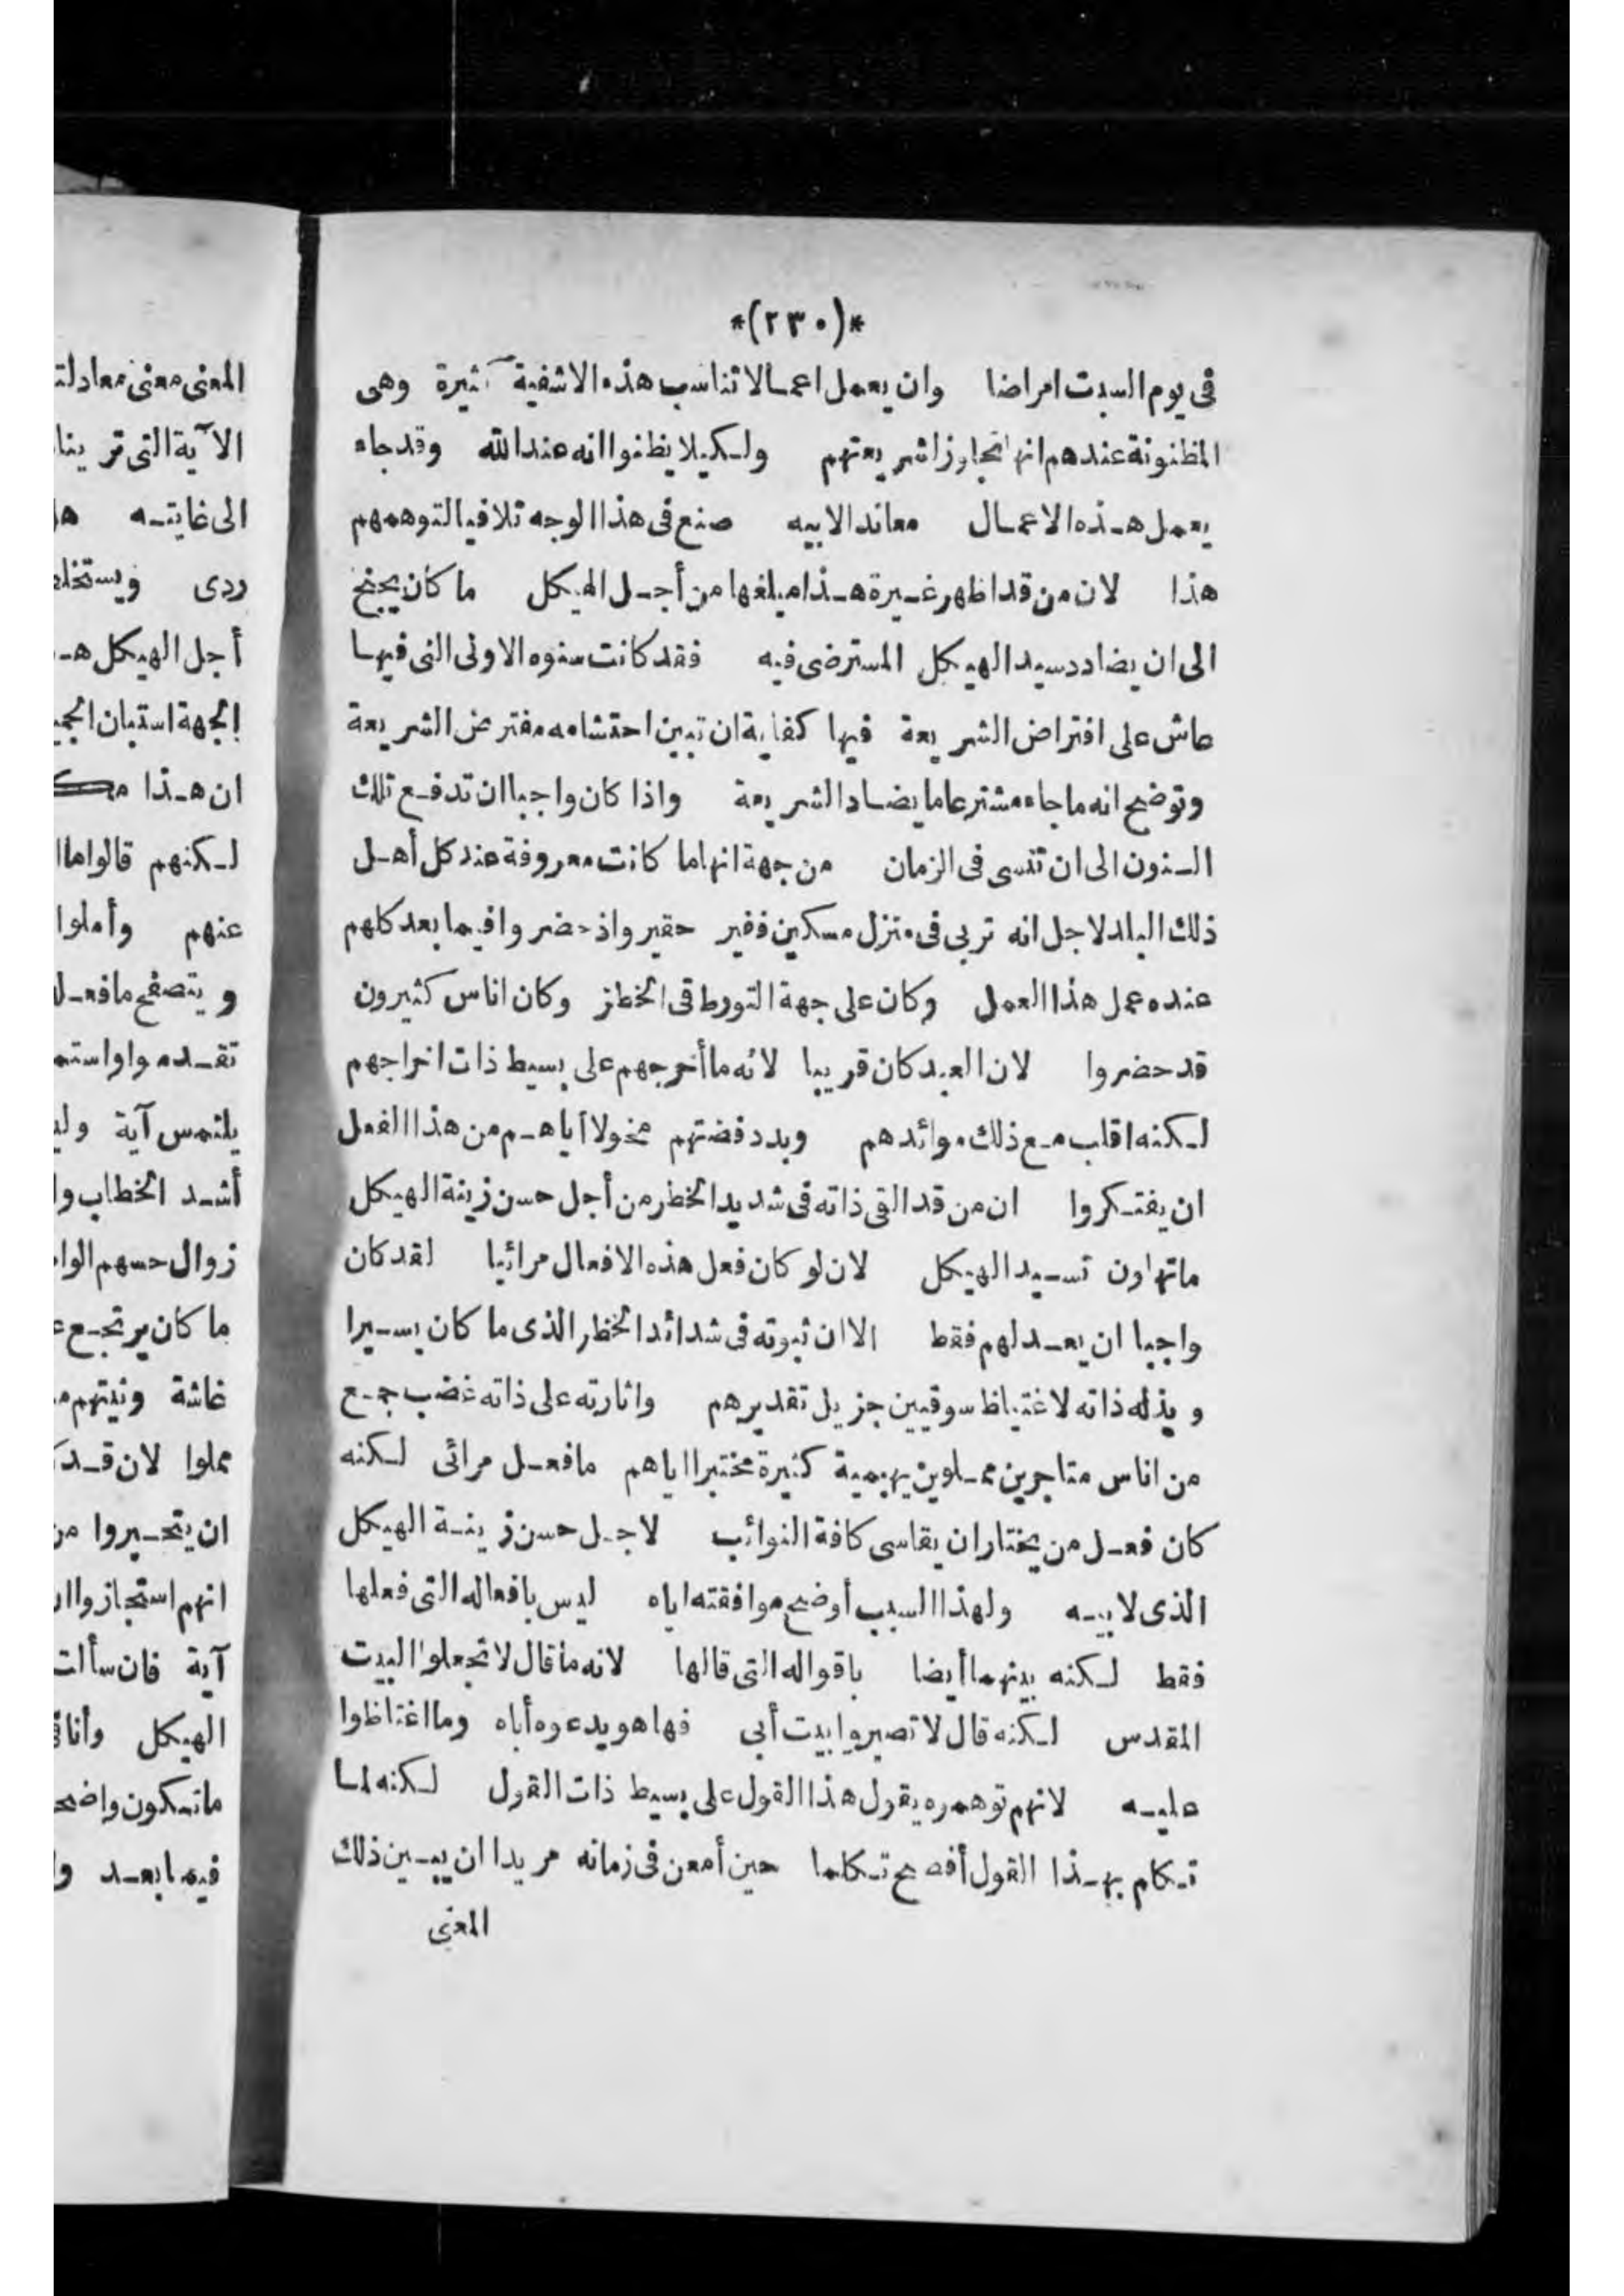 *(٢٣٠)*
فى يوم السبت امراضا وان يعمل اعمالا تناسب هذه الاشفية كثيرة وهى
المظنونة عندهم انها تجاوز الشريعتهم ولكيلا يظنوا انه عند الله وقد جاء
يعمل هذه الاعمال معاندا لابيه صنع فى هذا الوجه تلافيا لتوهمهم
هذا لان من قد اظهر غيرة هذا مبلغها من أجل الهيكل ما كان يجنح
الى ان يضادد سيد الهيكل المسترضى فيه فقد كانت سنوه الاولى التى فيها
عاش على افتراض الشريعة فيها كفاية ان تبين احتشامه مفترض الشريعة
وتوضح انه ما جاء مشترعا ما يضاد الشريعة واذا كان واجبا ان تدفع تلك
السنون الى ان تنسى فى الزمان من جهة انها ما كانت معروفة عند كل أهل
ذلك البلد لاجل انه تربى فى منزل مسكين فقير حقير واذ حضروا فيما بعد كلهم
عنده عمل هذا العمل وكان على جهة التورط فى الخطر وكان اناس كثيرون
قد حضروا لان العيد كان قريبا لانه ما أخرجهم على بسيط ذات اخراجهم
لكنه اقلب مع ذلك موائدهم وبدد فضتهم مخولا اياهم من هذا الفعل
ان يفتكروا ان من قد القى ذاته فى شديد الخطر من أجل حسن زينة الهيكل
ما تهاون تسيد الهيكل لان لو كان فعل هذه الافعال مرائيا لقد كان
واجبا ان يعد لهم فقط الا ان ثبوته فى شدائد الخطر الذى ما كان يسيرا
وبذله ذاته لاغتياظ سوقيين جزيل تقديرهم واثارته على ذاته غضب جمع
من اناس متاجرين مملوين بهيمية كثيرة مختبرا اياهم ما فعل مرائى لكنه
كان فعل من يختار ان يقاسى كافة النوائب لاجل حسن زينة الهيكل
الذى لابيه ولهذا السبب أوضح موافقته اياه ليس بافعاله التى فعلها
فقط لكنه بينها أيضا باقواله التى قالها لانه ما قال لا تجعلوا البيت
المقدس لكنه قال لا تصيروا بيت أبى فها هو يدعوه أباه وما اغتاظوا
عليه لانهم توهموه يقول هذا القول على بسيط ذات القول لكنه لما
تكلم بهذا القول أفصح تكلما حين أمعن فى زمانه مريدا ان يبين ذلك
المعنى
المعنى معنى معادلته
الآية التى تر ينا
الى غايته
ردى
أجل الهيكل
الجهة استبان
ان هذا
لكنهم قالوا
عنهم وأملوا
ويتصفح ما
تقدموا
يلتمس آية
أشد الخطاب
زوال حسهم
ما كان يرتجع
غاشة ونيتهم
عملوا لان
ان يتحيروا من
انهم استجازوا
آية فان سألت
الهيكل
ما تكون
فيما بعد